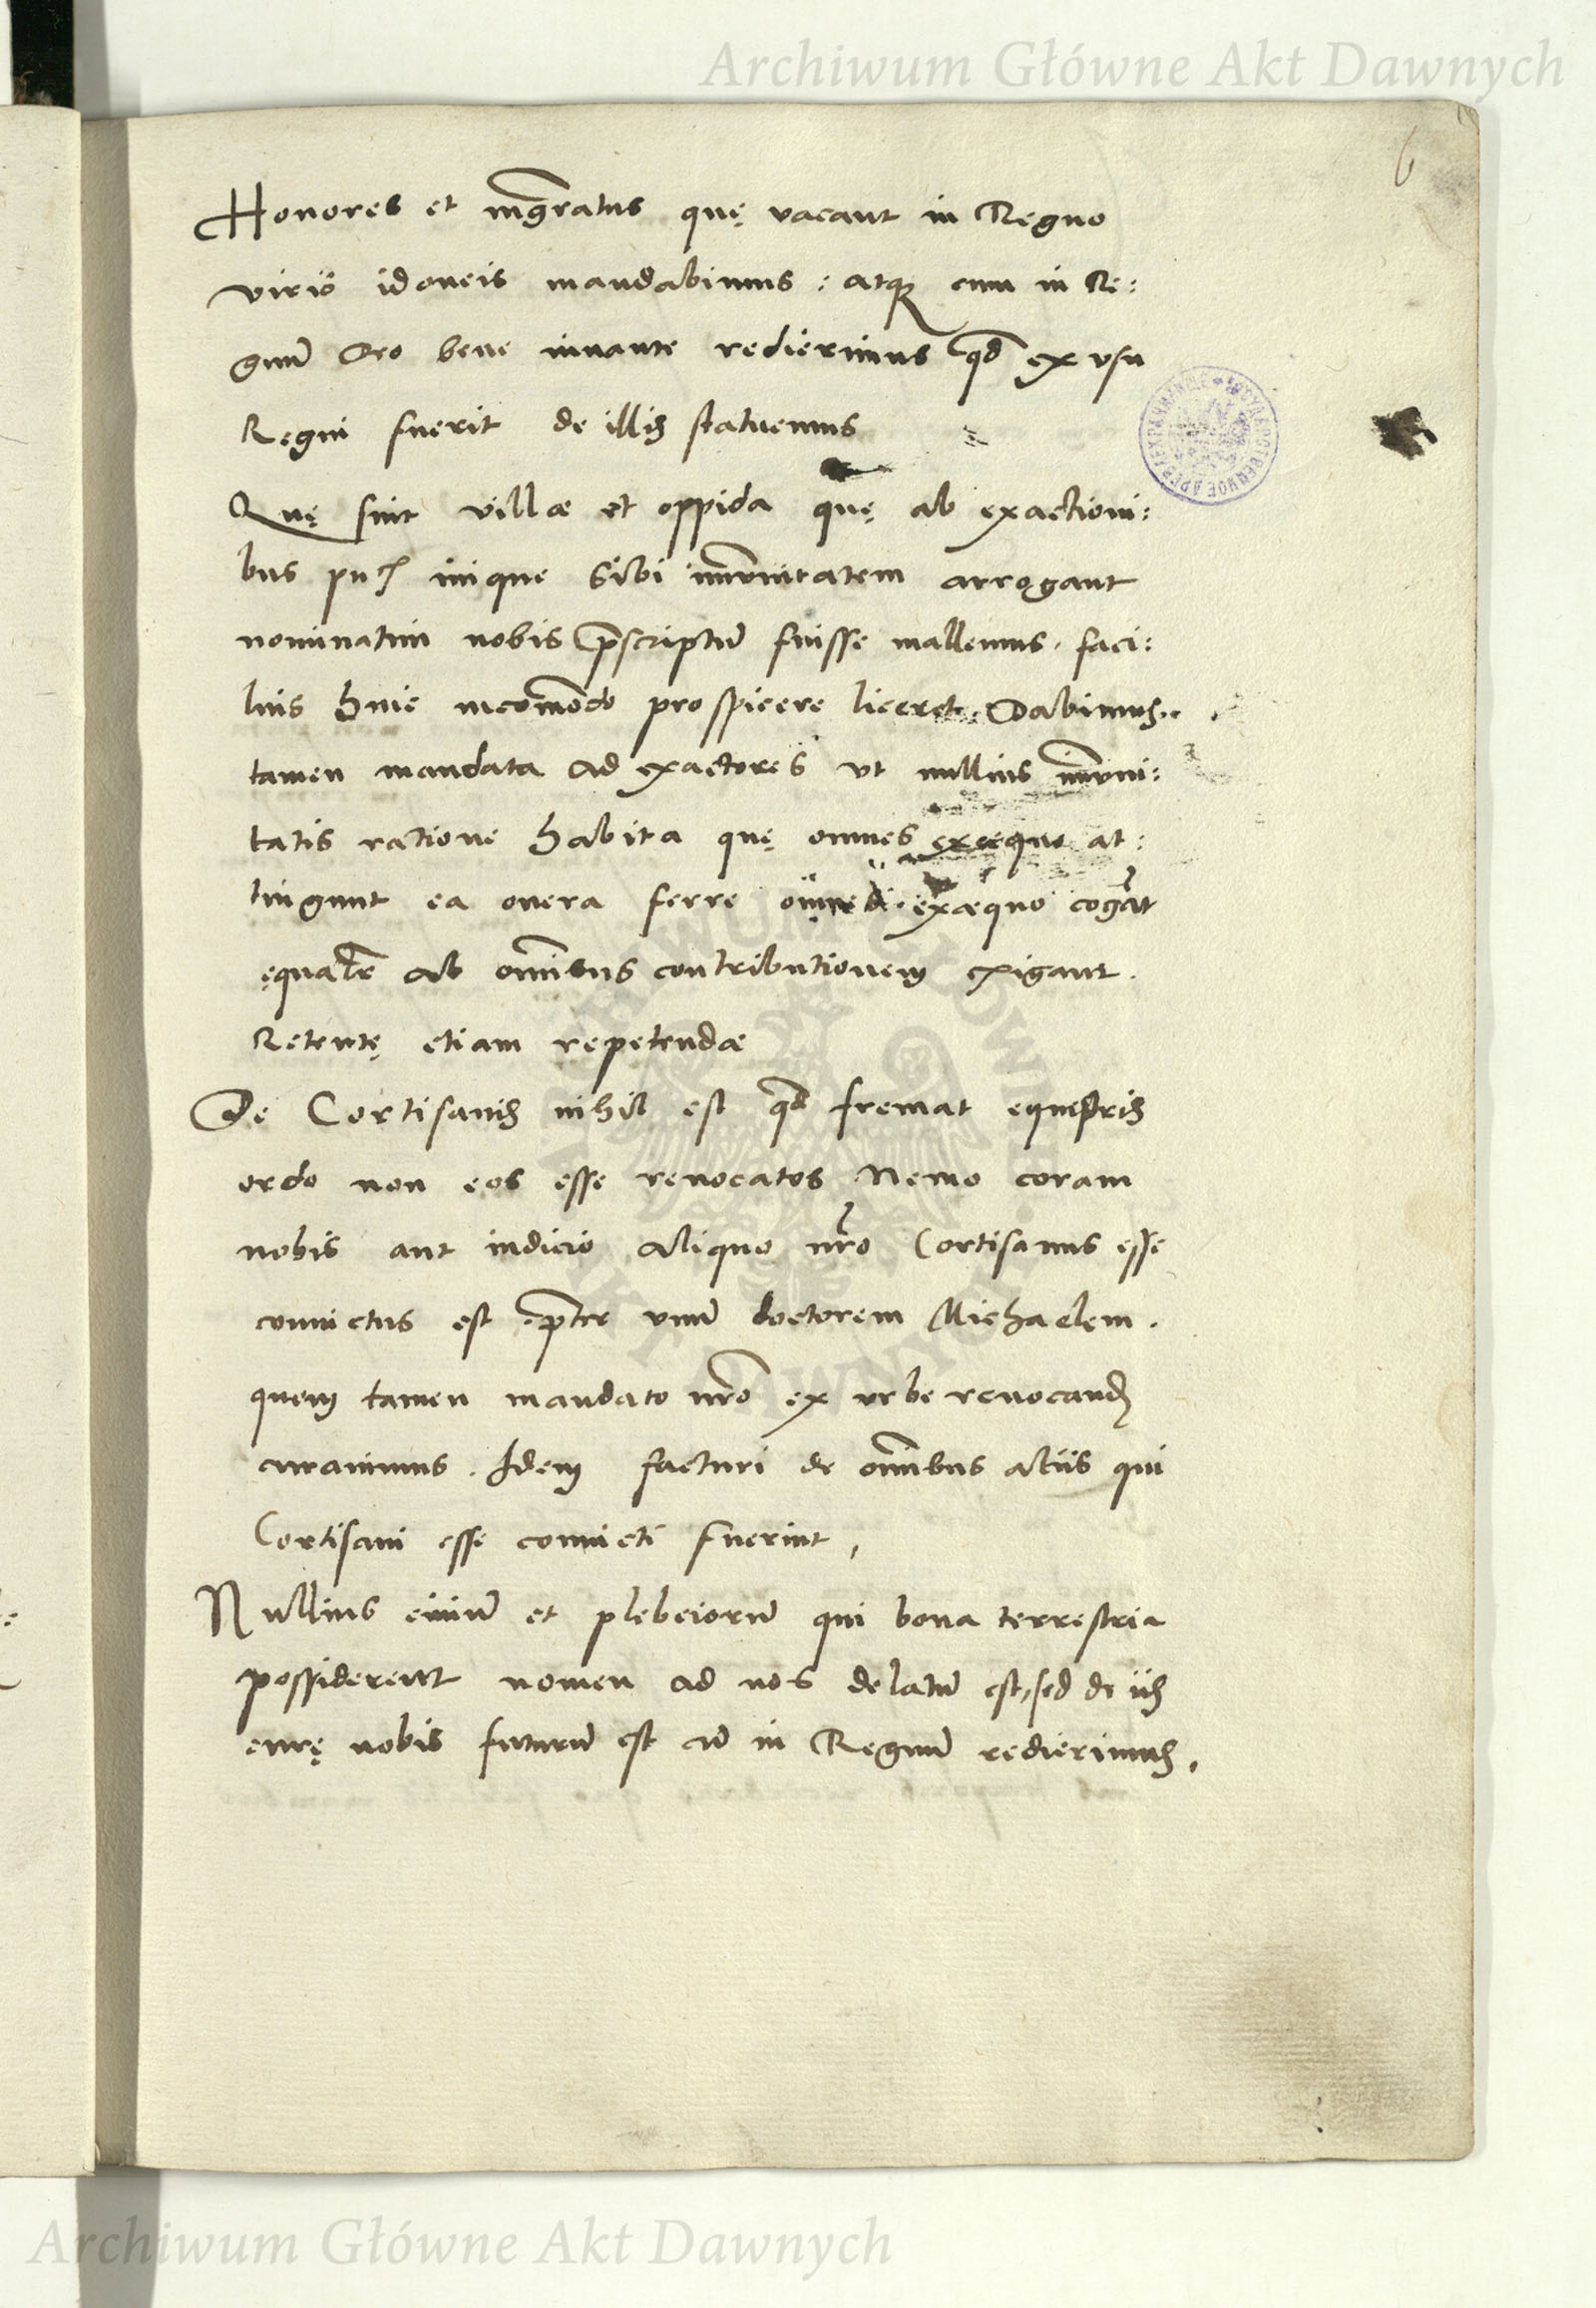 Archiwum Główne Akt Dawnych
6
Honores et mgratus quę vacant in Regno
viris idoneis mandabimus : atq cum in Re:
gnū Deo bene iuuante redierimus qd ex vsu
Regni fuerit de illis statuemus
Quę sint villæ et oppida quę ab exactioni:
bus inique sibi īmunitatem arrogant
nominatim nobis p̄scriptū fuisse mallemus. faci:
lius huic incōmodo prospicere liceret. Dabimus
tamen mandata ad exactores vt nullius īmuni:
tatis ratione habita quę omnes exęquo at:
tingunt ea onera ferre exæquo cogāt
ęqualē ab oībus contributionem exigant.
Retentę etiam repetendæ
De Cortisanis nihil est qd fremat equestris
ordo non eos esse reuocatos Nemo coram
nobis aut iudicio aliquo nr̄o Cortisanus esse
conuictus est p̄ter vnū doctorem Michaelem.
quem tamen mandato nr̄o ex vrbe reuocand
curauimus. Idem facturi de oībus aliis qui
Cortisani esse conuicti fuerint,
Nullius ciuiū et plebeiorū qui bona terrestria
possiderent nomen ad nos delatū est, sed de iis
curę nobis futurū est cū in Regnū redierimus,
Archiwum Główne Akt Dawnych